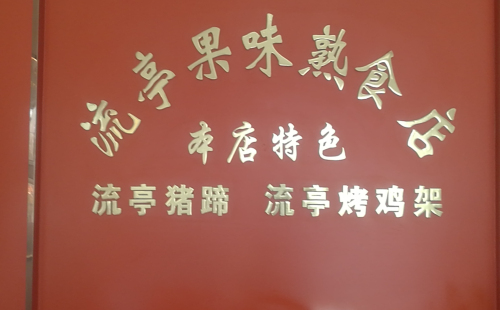 流亭果味熟食店
本店特色
流亭猪蹄 流亭烤鸡架